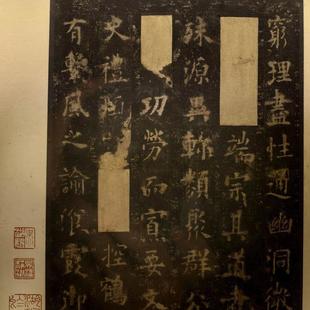 窮理盡性通幽洞微
端宗其道
殊源異軫類聚群
功勞而宣要文
史禮控鶴
有繫風之諭飡霞御